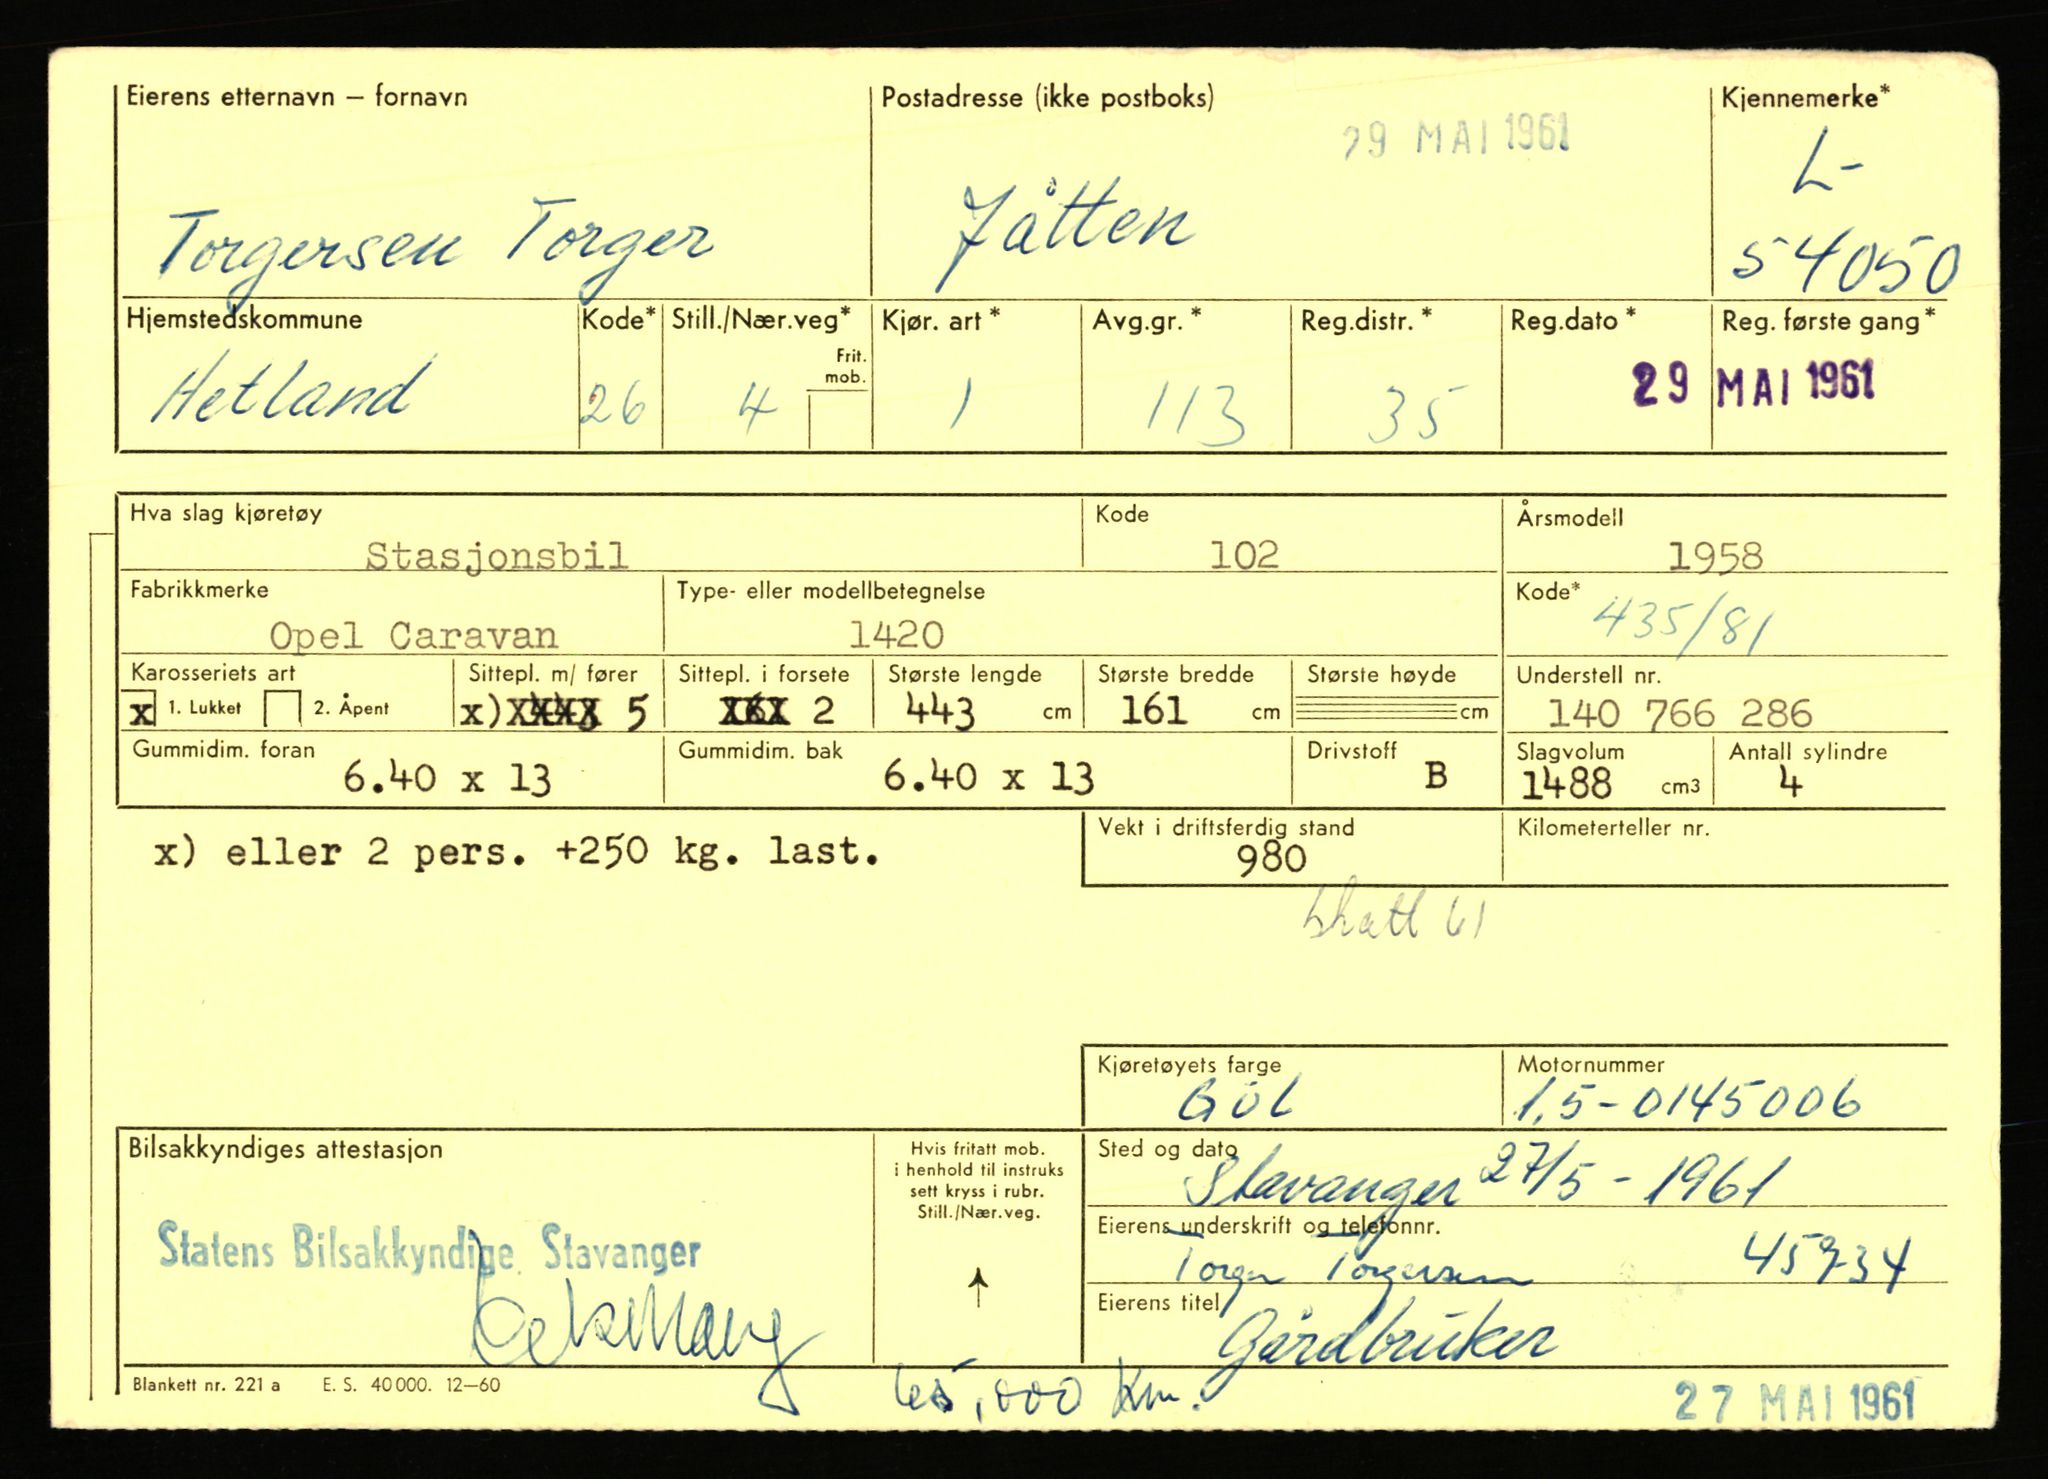 Eierens etternavn – fornavn
Postadresse (ikke postboks)
Kjennemerke*
29 MAI 1961
L-
Torgersen Torger
Jåtten
54050
Hjemstedskommune
Kode*
Still./Nær.veg*
Kjør. art *
Avg.gr. *
Reg.distr. *
Reg.dato *
Reg. første gang *
Frit.
mob.
Hetland
26
4
1
113
35
29 MAI 1961
Hva slag kjøretøy
Kode
Årsmodell
Stasjonsbil
102
1958
Fabrikkmerke
Type- eller modellbetegnelse
Kode*
Opel Caravan
1420
435/81
Karosseriets art
Sittepl. m/ fører
Sittepl. i forsete
Største lengde
Største bredde
Største høyde
Understell nr.
x 1. Lukket
2. Åpent
x) 5
2
443 cm
161 cm
cm
140 766 286
Gummidim. foran
Gummidim. bak
Drivstoff
Slagvolum
Antall sylindre
6.40 x 13
6.40 x 13
B
1488 cm3
4
x) eller 2 pers. +250 kg. last.
Vekt i driftsferdig stand
Kilometerteller nr.
980
skatt 61
Kjøretøyets farge
Motornummer
Gul
1,5-0145006
Bilsakkyndiges attestasjon
Hvis fritatt mob.
i henhold til instruks
sett kryss i rubr.
Still./Nær.veg.
Sted og dato
Stavanger 27/5 - 1961
Statens Bilsakkyndige Stavanger
Eierens underskrift og telefonnr.
Torger Torgersen
Eierens titel
Gårdbruker
Blankett nr. 221 a E. S. 40 000. 12–60
65,000 Km.
27 MAI 1961